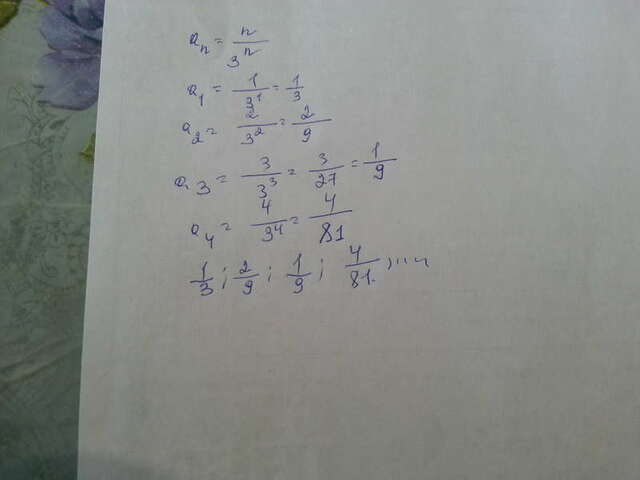 aₙ = n/3ⁿ
a₁ = 1/3¹ = 1/3
a₂ = 2/3² = 2/9
a₃ = 3/3³ = 3/27 = 1/9
a₄ = 4/3⁴ = 4/81
1/3 ; 2/9 ; 1/9 ; 4/81, ...